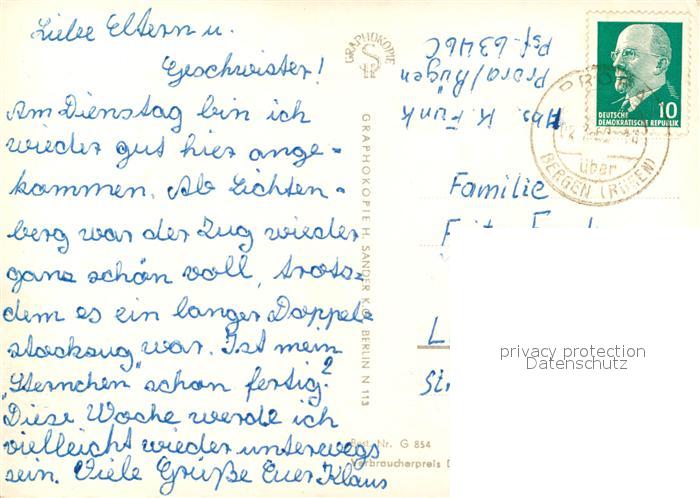 Liebe Eltern u.
Geschwister!
Am Dienstag bin ich
wieder gut hier ange-
kommen. Ab Lichten-
berg war der Zug wieder
ganz schön voll, trotz-
dem es ein langer Doppel-
stockzug war. Ist mein
"Sternchen" schon fertig?
Diese Woche werde ich
vielleicht wieder unterwegs
sein. Viele Grüße Euer Klaus
GRAPHOKOPIE
GRAPHOKOPIE H. SANDER K.G. BERLIN N 113
Best. Nr. G 854
Verbraucherpreis
K. Funk
Prora/Rügen
Psf. 6346C
PRORA
über
BERGEN (RÜGEN)
10
DEUTSCHE
DEMOKRATISCHE REPUBLIK
Familie
privacy protection
Datenschutz